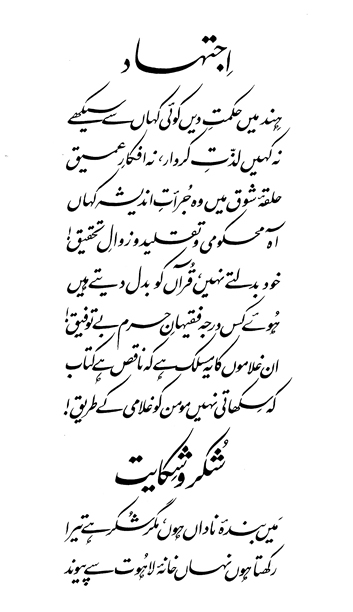 اِجتہاد
ہِند میں حکمتِ دیں کوئی کہاں سے سیکھے
نہ کہیں لذّتِ کردار، نہ افکارِ عمیق
حلقۂ شوق میں وہ جُرأتِ اندیشہ کہاں
آہ محکومی و تقلید و زوالِ تحقیق!
خود بدلتے نہیں، قُرآں کو بدل دیتے ہیں
ہُوئے کس درجہ فقیہانِ حرم بے توفیق!
ان غلاموں کا یہ مسلک ہے کہ ناقص ہے کتاب
کہ سِکھاتی نہیں مومن کو غلامی کے طریق!
شُکر و شکایت
مَیں بندۂ ناداں ہوں، مگر شُکر ہے تیرا
رکھتا ہوں نہاں خانۂ لاہُوت سے پیوند